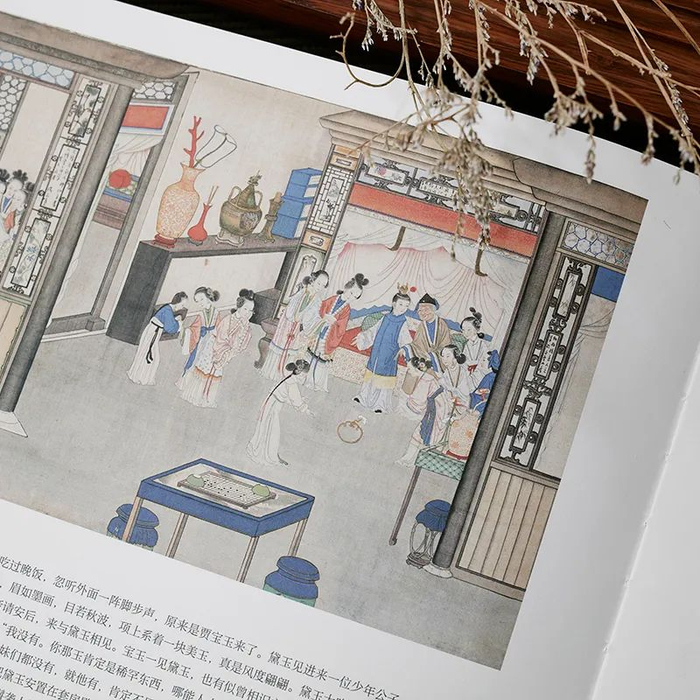 吃过晚饭，忽听外面一阵脚步声，原来是贾宝玉来了。黛玉见进来一位少年公子
，眉如墨画，目若秋波，项上系着一块美玉，真是风度翩翩。黛玉
请安后，来与黛玉相见。宝玉一见黛玉，也有似曾相识
“我没有。你那玉肯定是稀罕东西，哪能人
妹们都没有，就他有，肯定不
黛玉安置在套